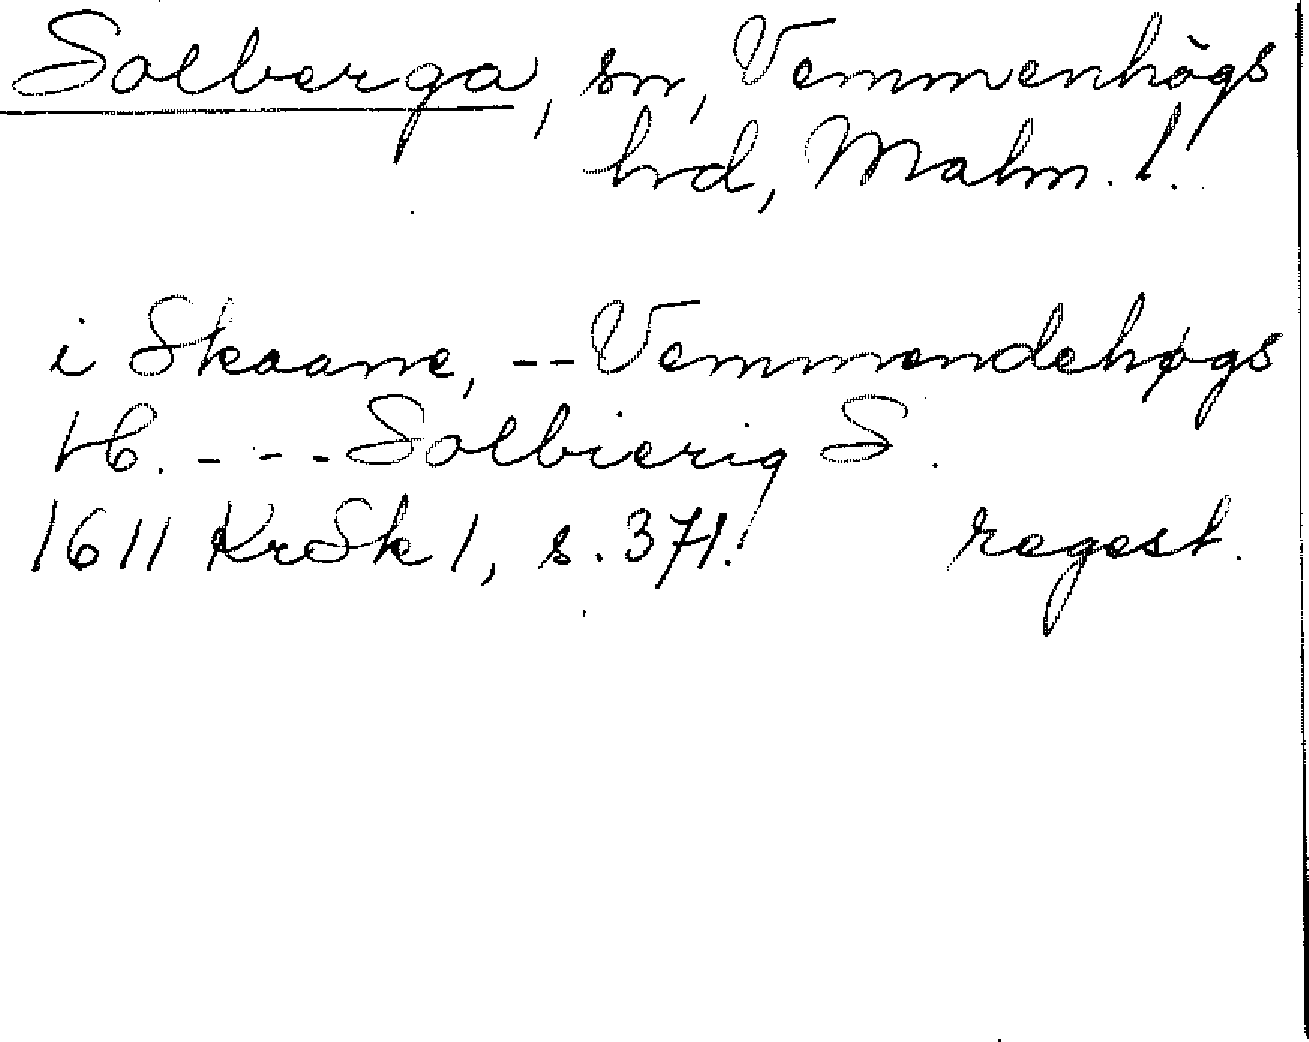 Solberga, sn, Vemmenhögs
hrd, Malm. l.
i Skaane, -- Vemmendehøgs
H. - - - Solbierig S.
1611 KrSk 1, s. 371. regest.